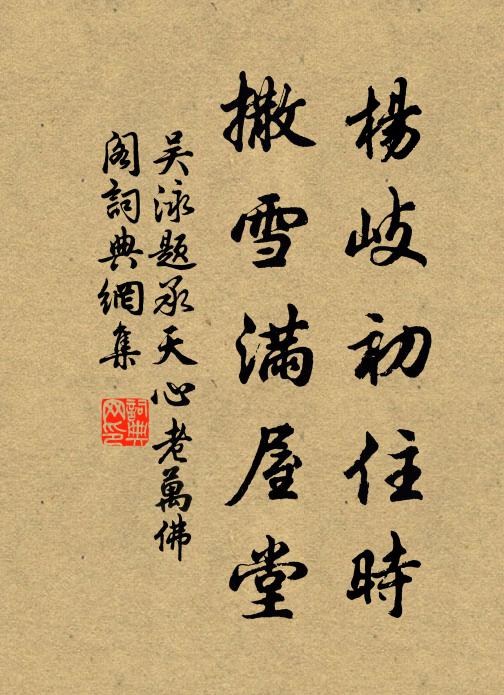 楊岐初住時
撒雪滿屋堂
吴泳題承天心老萬佛
閣詞典網集
詞典網印